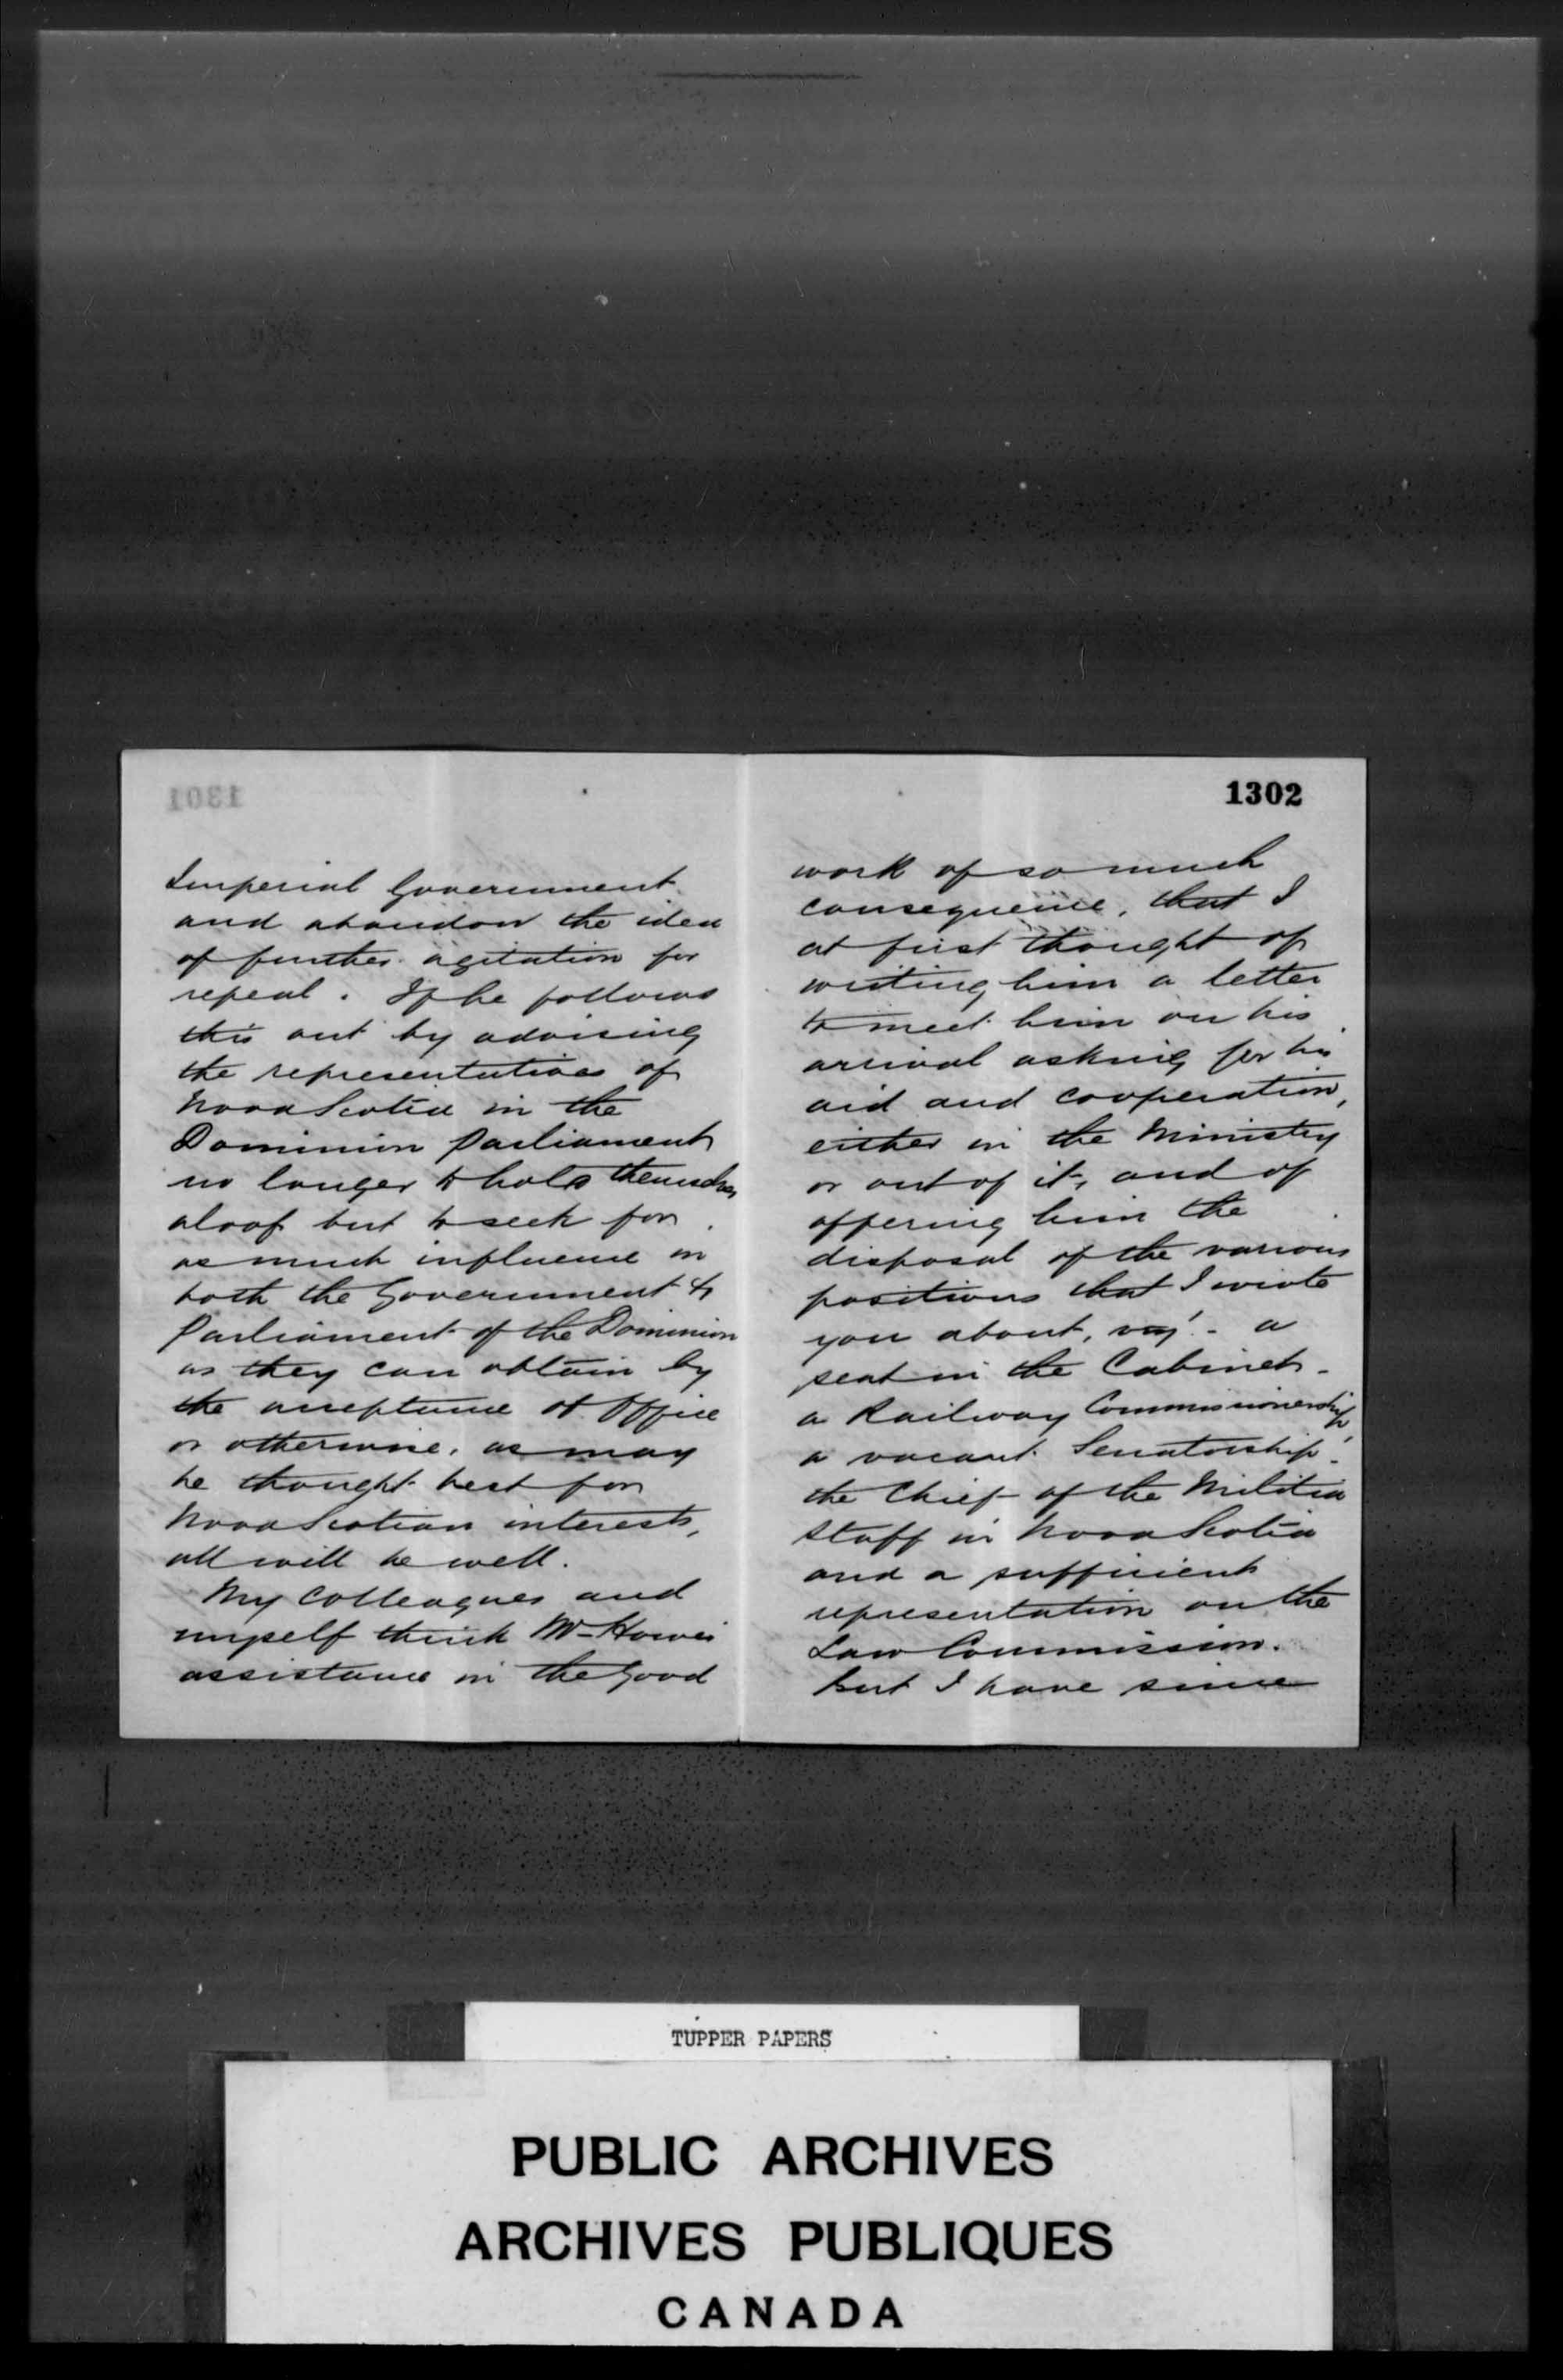 1301
Imperial Government
and abandon the idea
of further agitation for
repeal. If he follows
this out by advising
the representatives of
Nova Scotia in the
Dominion Parliament
no longer to hold themselves
aloof but to seek for
as much influence in
both the Government &
Parliament of the Dominion
as they can obtain by
the acceptance of Office
or otherwise, as may
be thought best for
Nova Scotian interests,
all will be well.
My Colleagues and
myself think Mr Howe's
assistance in the good
1302
work of so much
consequence, that I
at first thought of
writing him a letter
to meet him on his
arrival asking for his
aid and cooperation,
either in the Ministry
or out of it, and of
offering him the
disposal of the various
positions that I wrote
you about, viz! - a
seat in the Cabinet -
a Railway Commissionership,
a vacant Senatorship -
the Chief of the Militia
Staff in Nova Scotia
and a sufficient
representation on the
Law Commission.
But I have since
TUPPER PAPERS
PUBLIC ARCHIVES
ARCHIVES PUBLIQUES
CANADA